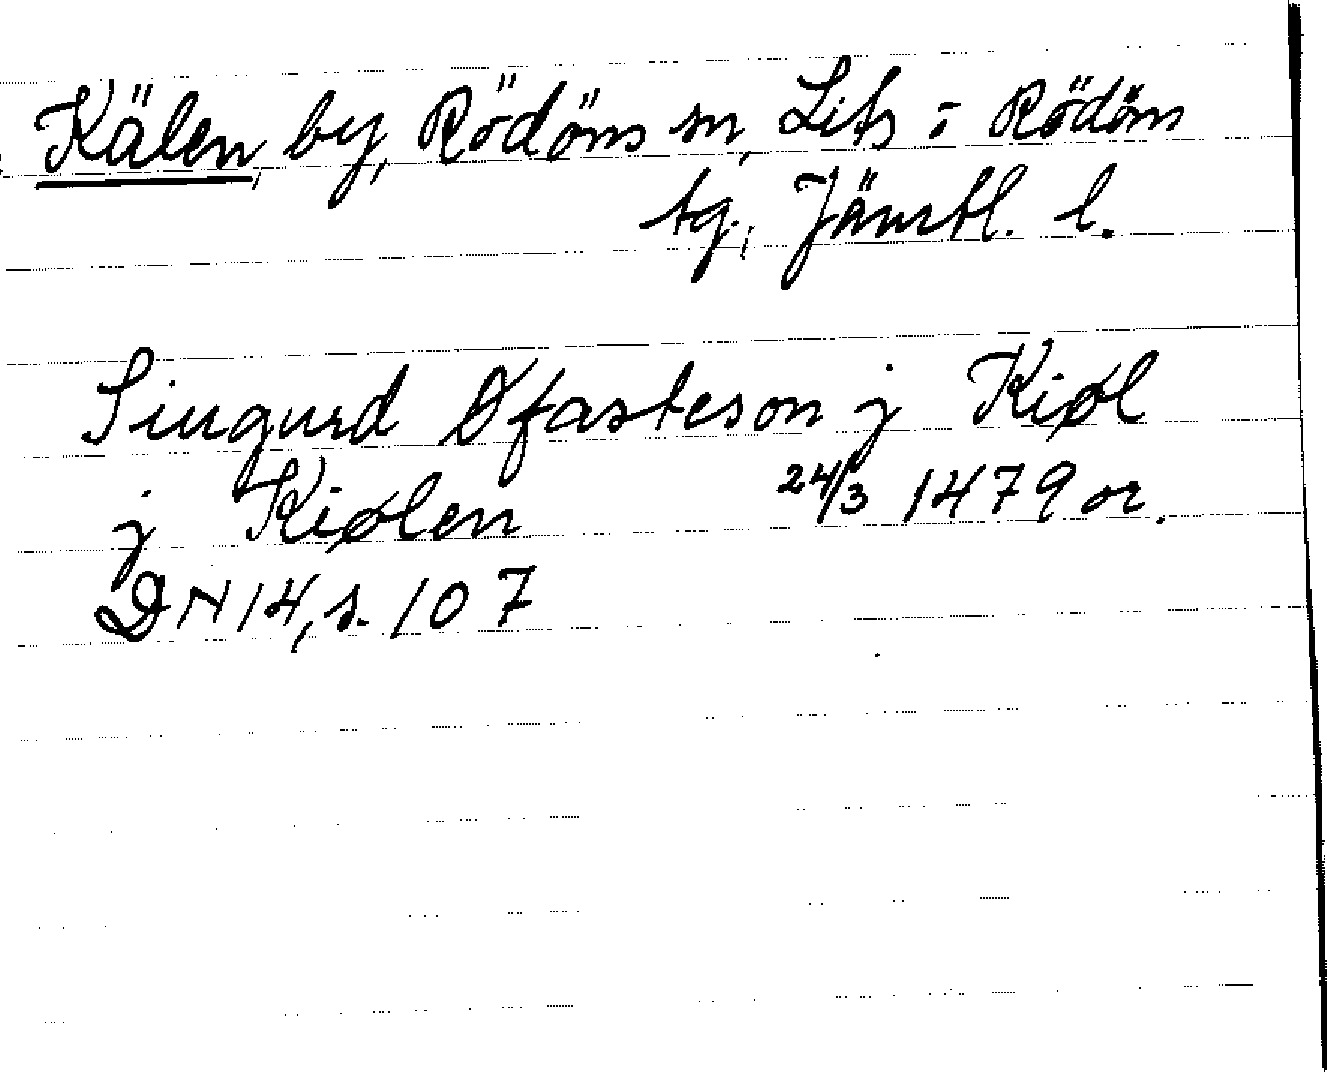 Kälen, by, Rödöns sn, Lits o Rödöns
tg., Jämtl. l.
Siugurd Øfasteson j Kiøl
j Kiølen 24/3 1479 or.
DN 14, s. 107